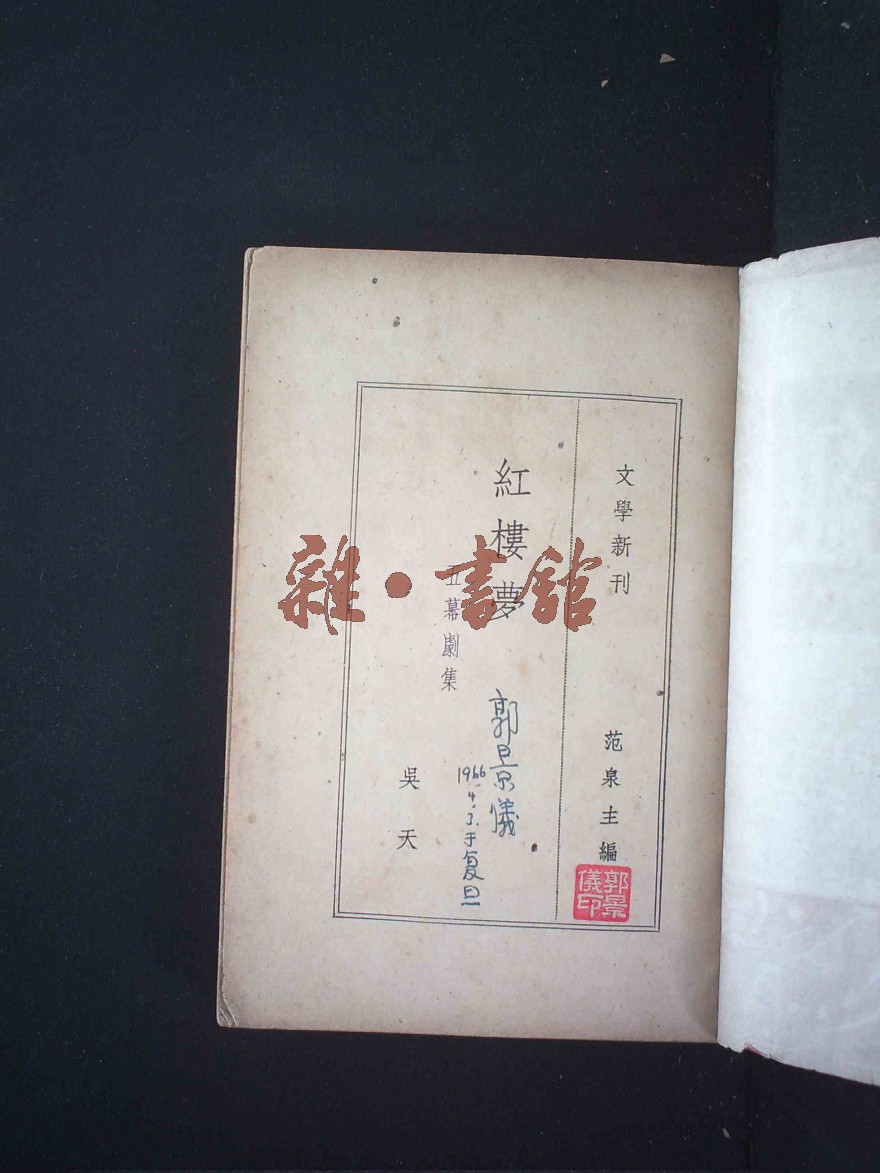 文學新刊
范泉主編
紅樓夢
五幕劇集
吳天
郭景儀
1966.4.3.于复旦
郭景儀印
雜·書舘